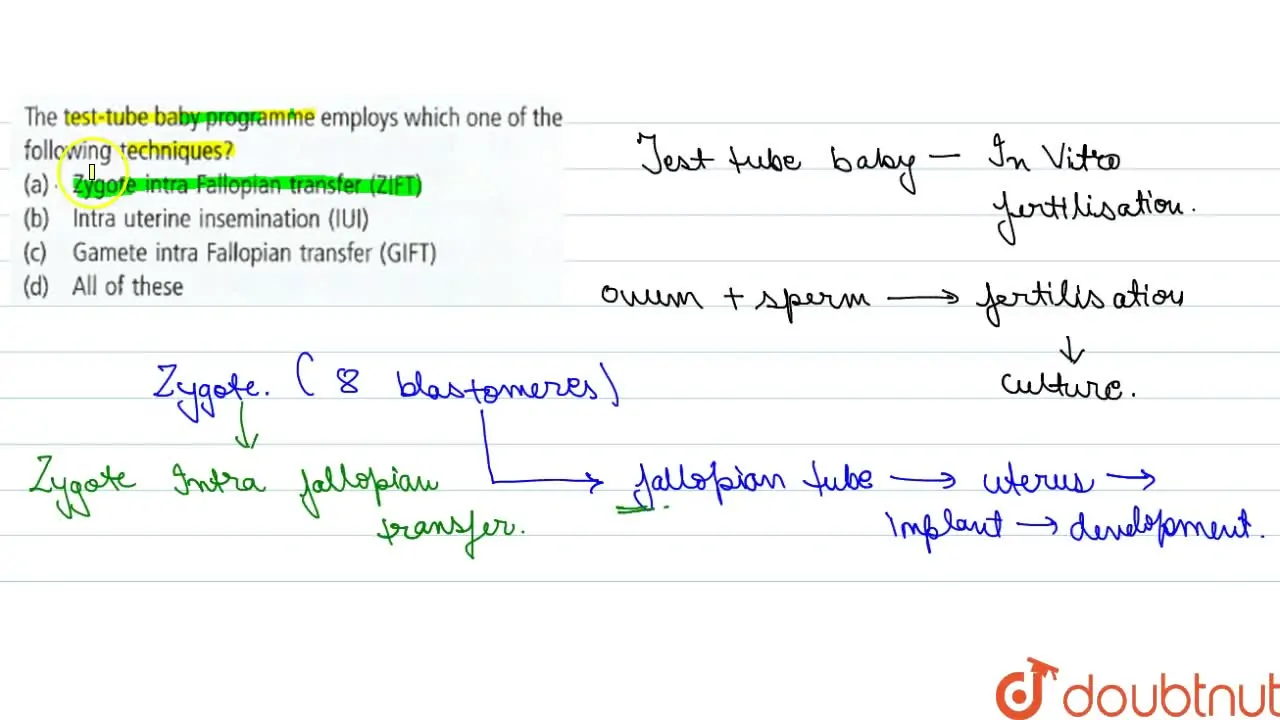 The test-tube baby programme employs which one of the
following techniques?
(a) Zygote intra Fallopian transfer (ZIFT)
(b) Intra uterine insemination (IUI)
(c) Gamete intra Fallopian transfer (GIFT)
(d) All of these
Test tube baby — In Vitro
fertilisation.
ovum + sperm → fertilisation
↓
culture.
Zygote. ( 8 blastomeres)
Zygote Intra fallopian
transfer.
fallopian tube → uterus →
implant → development.
doubtnut